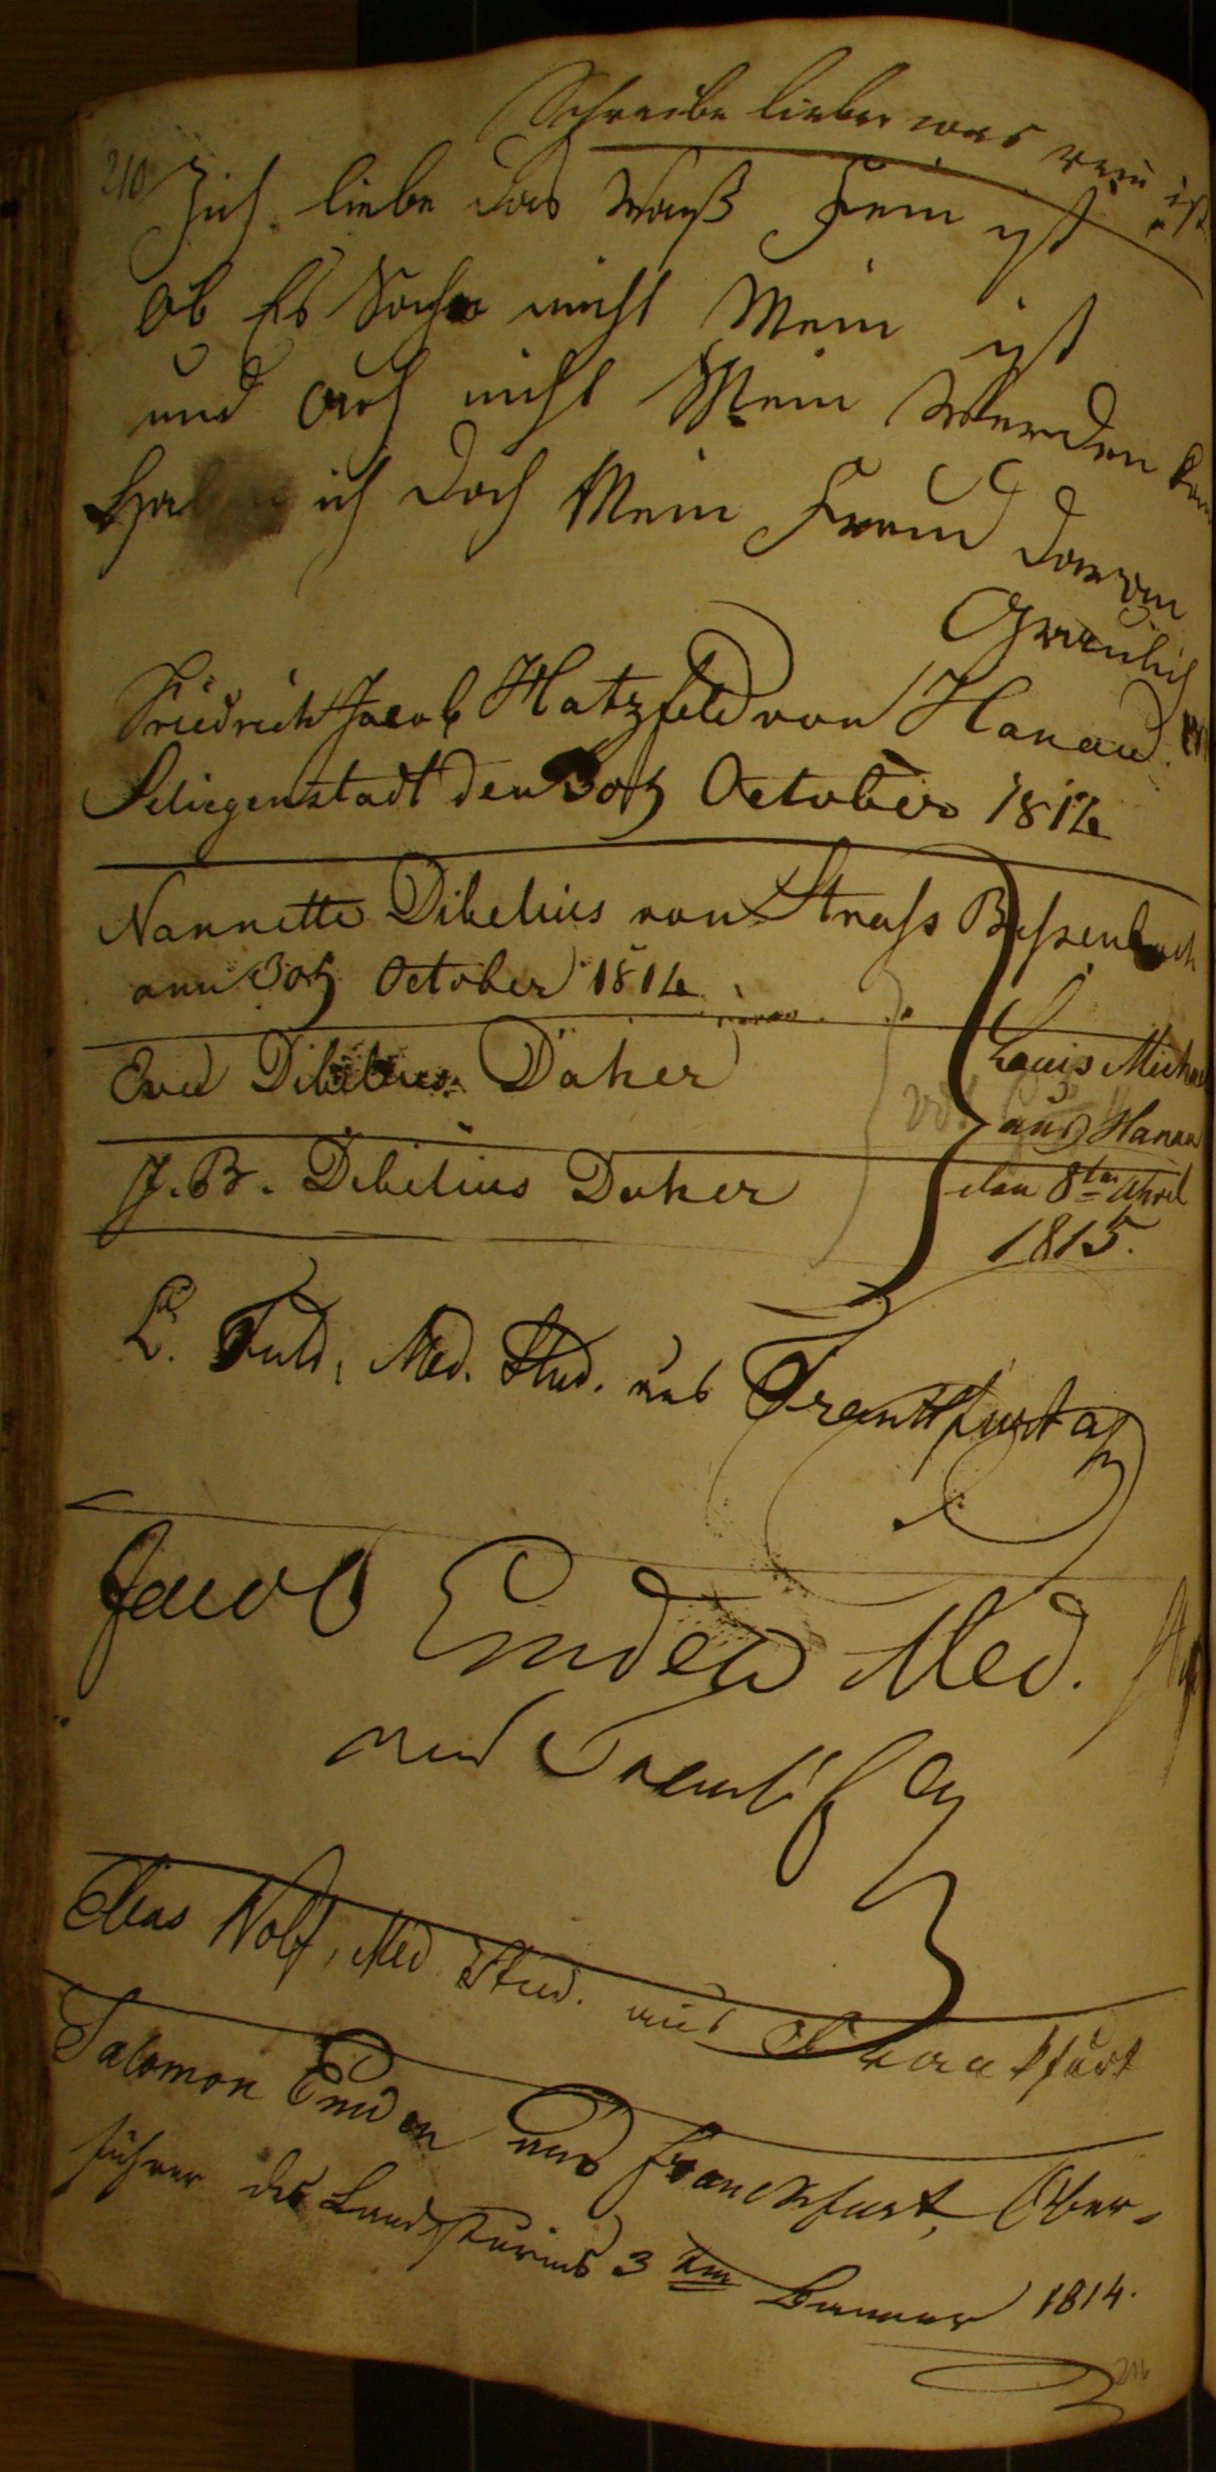 Schreibe lieber was rein ist
210
Ich liebe das Waß Fein ist
ob Es Schon nicht Mein ist
und auch nicht Mein Werden kan
Habe ich doch Mein Freud daran
Friedrich Jacob Hatzfeld von Hanau
Seliegenstadt den 30th October 1814
Nannette Dibelius von Strass Bessenbach
am 30th October 1814
Eva Dibelius Daher
J. B. Dibelius Daher
Louis Michael
aus Hanau
den 8ten April
1815.
L. Fuld, Med. Stud. aus Frankfurt a/m
Jacob Emden Med.
aus Frankf. a/m
Elias Wolf, Med. Stud. aus Frankfurt
Salomon Emden aus Franckfurt, Ober-
führer des Landsturms 3ten Banner 1814.